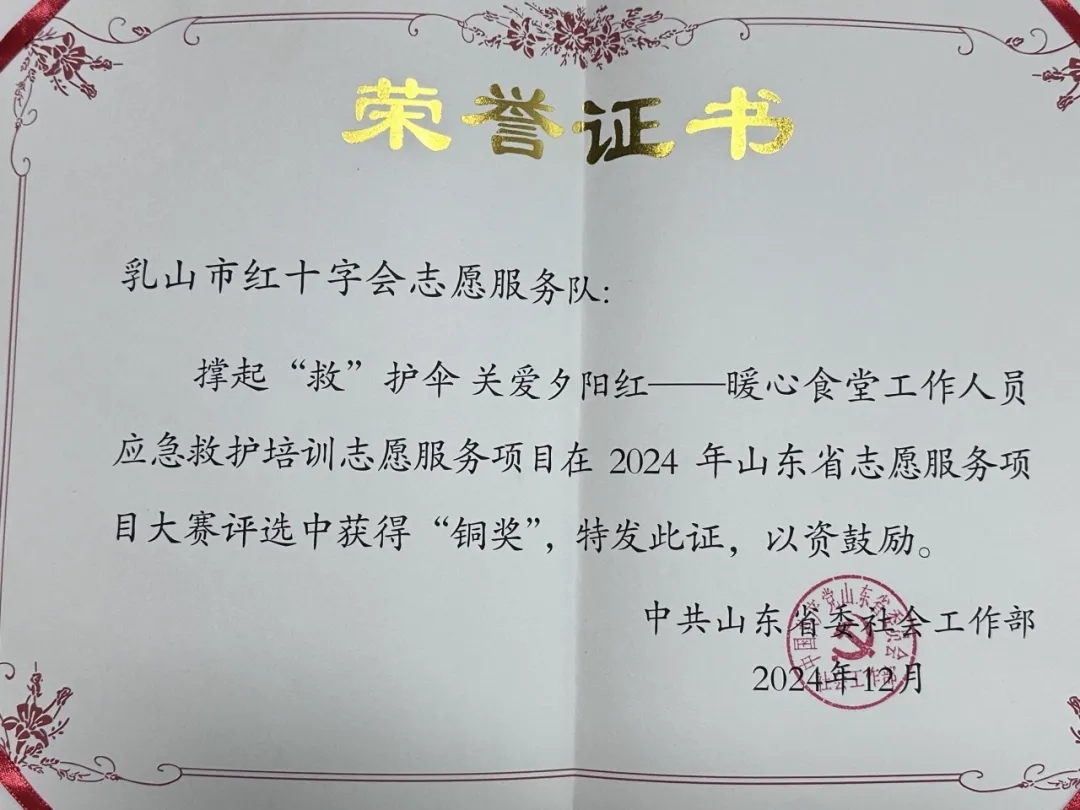 荣誉证书
乳山市红十字会志愿服务队:
撑起“救”护伞 关爱夕阳红——暖心食堂工作人员
应急救护培训志愿服务项目在 2024 年山东省志愿服务项
目大赛评选中获得“铜奖”,特发此证,以资鼓励。
中共山东省委社会工作部
2024年12月
中国共产党山东省委员会
社会工作部